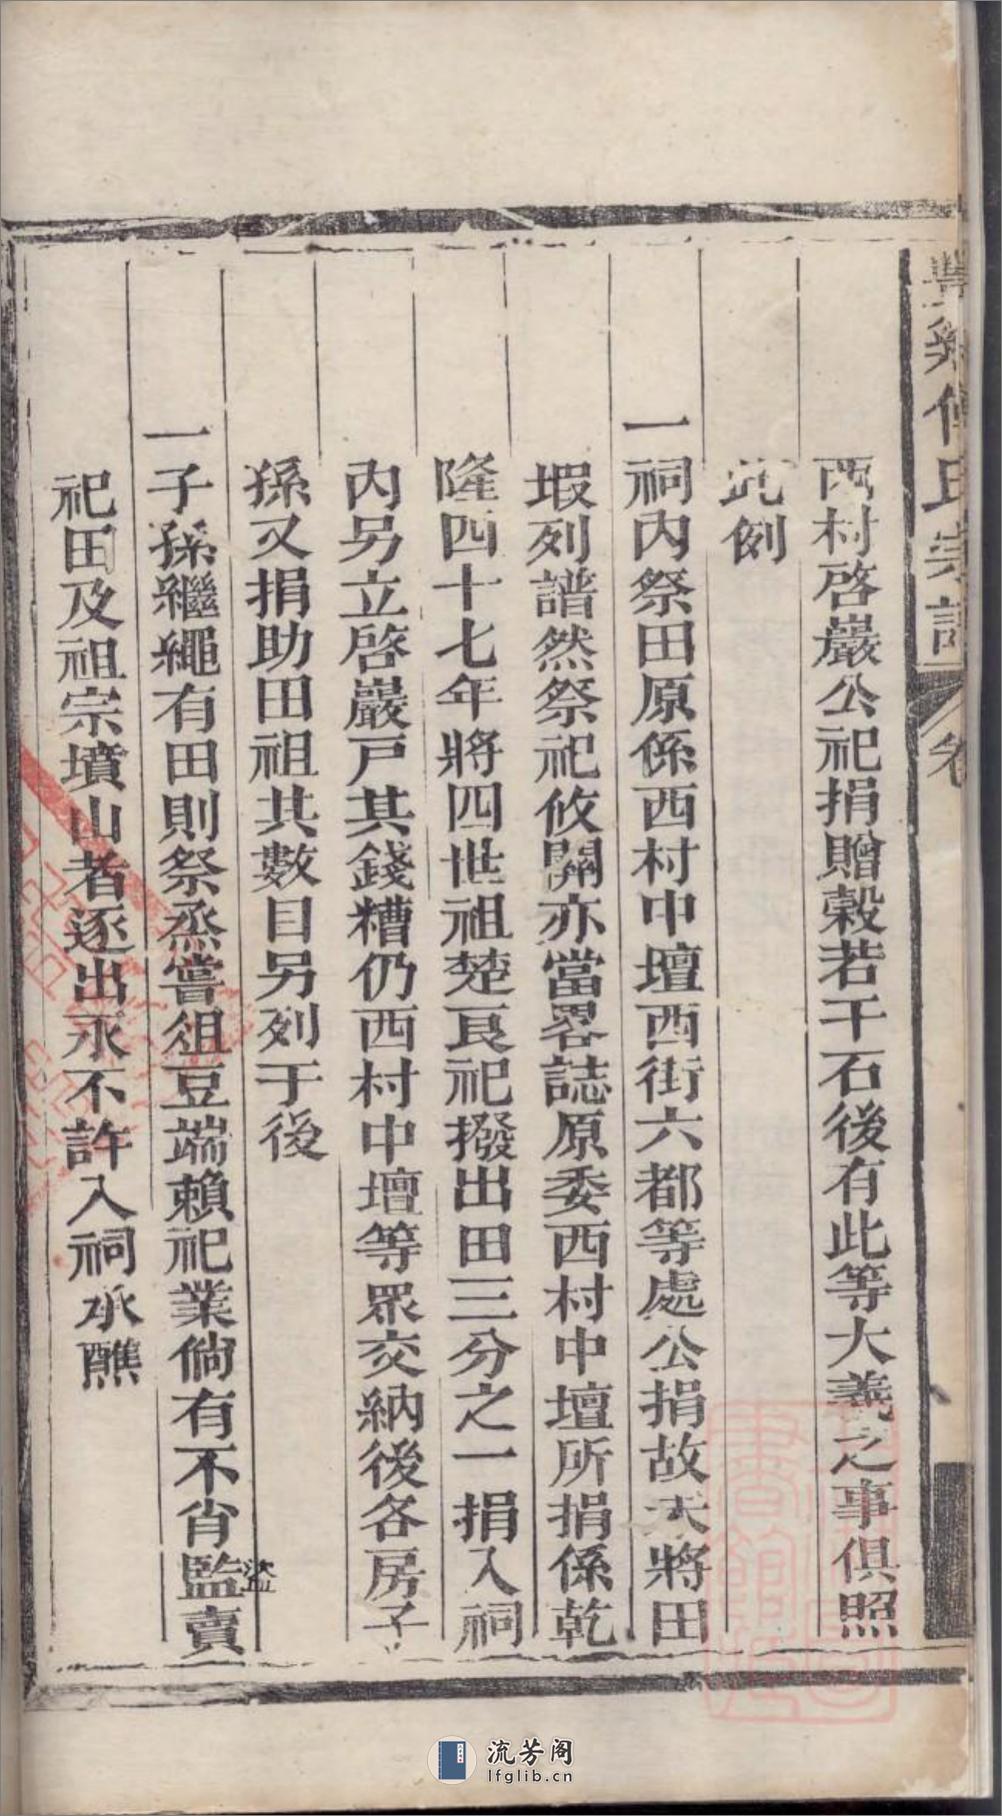 氏宗譜 卷
西村啓巖公祀捐贈穀若干石後有此等大義之事俱照
此例
一祠內祭田原係西村中壇西街六都等處公捐故未將田
塅列譜然祭祀攸關亦當畧誌原委西村中壇所捐係乾
隆四十七年將四世祖楚良祀撥出田三分之一捐入祠
內另立啓巖戸其錢糟仍西村中壇等眾交納後各房子
孫又捐助田祖共數目另列于後
一子孫繼繩有田則祭烝嘗俎豆端賴祀業倘有不肖監賣
盜
祀田及祖宗墳山者逐出永不許入祠承醮
流芳阁
lfglib.cn